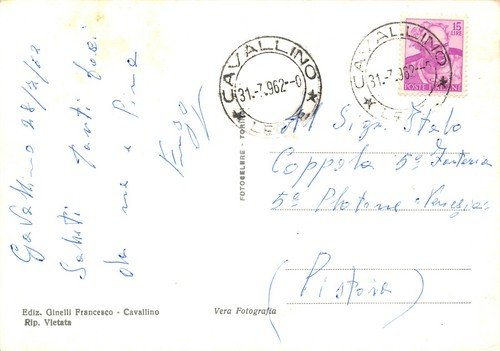 Cavallino 28/7/62
Saluti tanti baci
da me e Pina
CAVALLINO
31.-7.962--0
CAVALLINO
31.-7.962--0
15
LIRE
POSTE ITALIANE
FOTOCELERE - TORINO
Al Sig. Italo
Coppola 5ª Fanteria
5º Plotone Venezia
(Pistoia)
Ediz. Ginelli Francesco - Cavallino
Rip. Vietata
Vera Fotografia